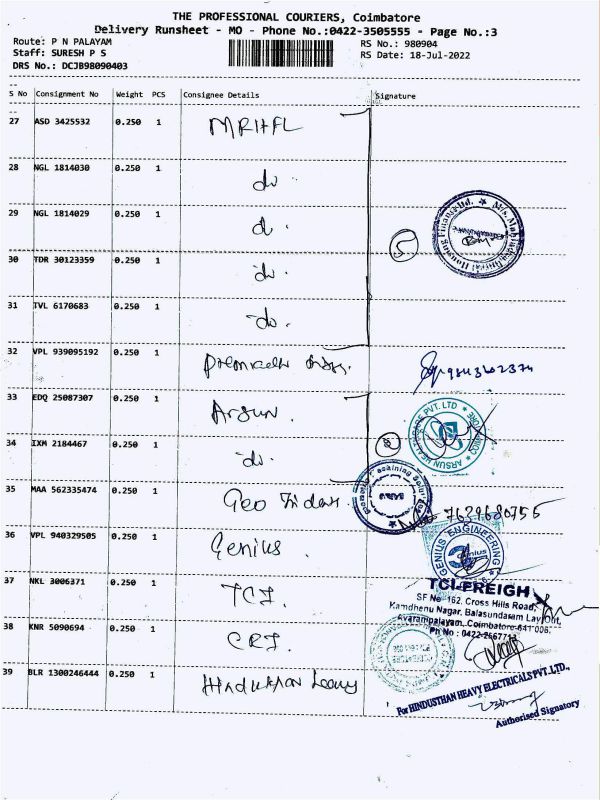 THE PROFESSIONAL COURIERS, Coimbatore
Delivery Runsheet - MO - Phone No.:0422-3505555 - Page No.:3
Route: P N PALAYAM
Staff: SURESH P S
DRS No.: DCJB98090403
RS No.: 980904
RS Date: 18-Jul-2022
S No Consignment No Weight PCS Consignee Details Signature
27 ASD 3425532 0.250 1 MRHFL
28 NGL 1814030 0.250 1 do
29 NGL 1814029 0.250 1 d.
30 TDR 30123359 0.250 1 do.
5
31 TVL 6170683 0.250 1 do.
32 VPL 939095192 0.250 1
33 EDQ 25087307 0.250 1 Arsun.
34 IXM 2184467 0.250 1 do.
ARSUN HEALTHCARE PVT. LTD
35 MAA 562335474 0.250 1 Geo
7639680755
36 VPL 940329505 0.250 1 Genius.
GENIUS ENGINEERING
37 NKL 3006371 0.250 1 TCI.
TCI-FREIGH
SF No-162, Cross Hills Road,
Kamdhenu Nagar, Balasundaram Lay Out,
Avarampalayam, Coimbatore-641 006.
Ph No : 0422-256771
38 KNR 5090694 0.250 1 CRI.
39 BLR 1300246444 0.250 1 Hindusthan Heavy
For HINDUSTHAN HEAVY ELECTRICALS PVT. LTD.,
Authorised Signatory